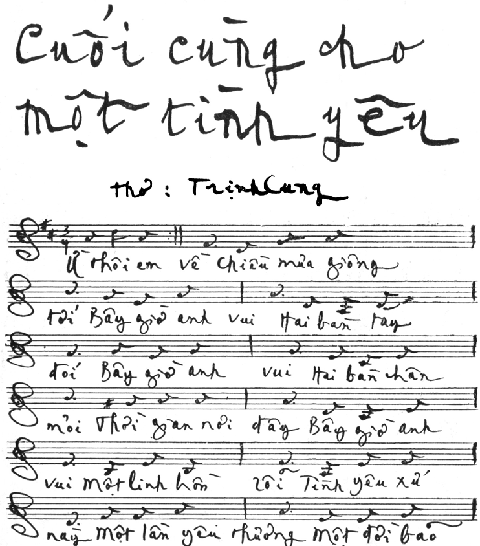 Cuối cùng cho
một tình yêu
thơ : Trịnh Cung
Ừ thôi em về chiều mưa giông
tới Bây giờ anh vui Hai bàn tay
đói Bây giờ anh vui Hai bàn chân
mỏi Thời gian nơi đây Bây giờ anh
vui một linh hồn rỗi Tình yêu xứ
này Một lần yêu thương Một đời bão